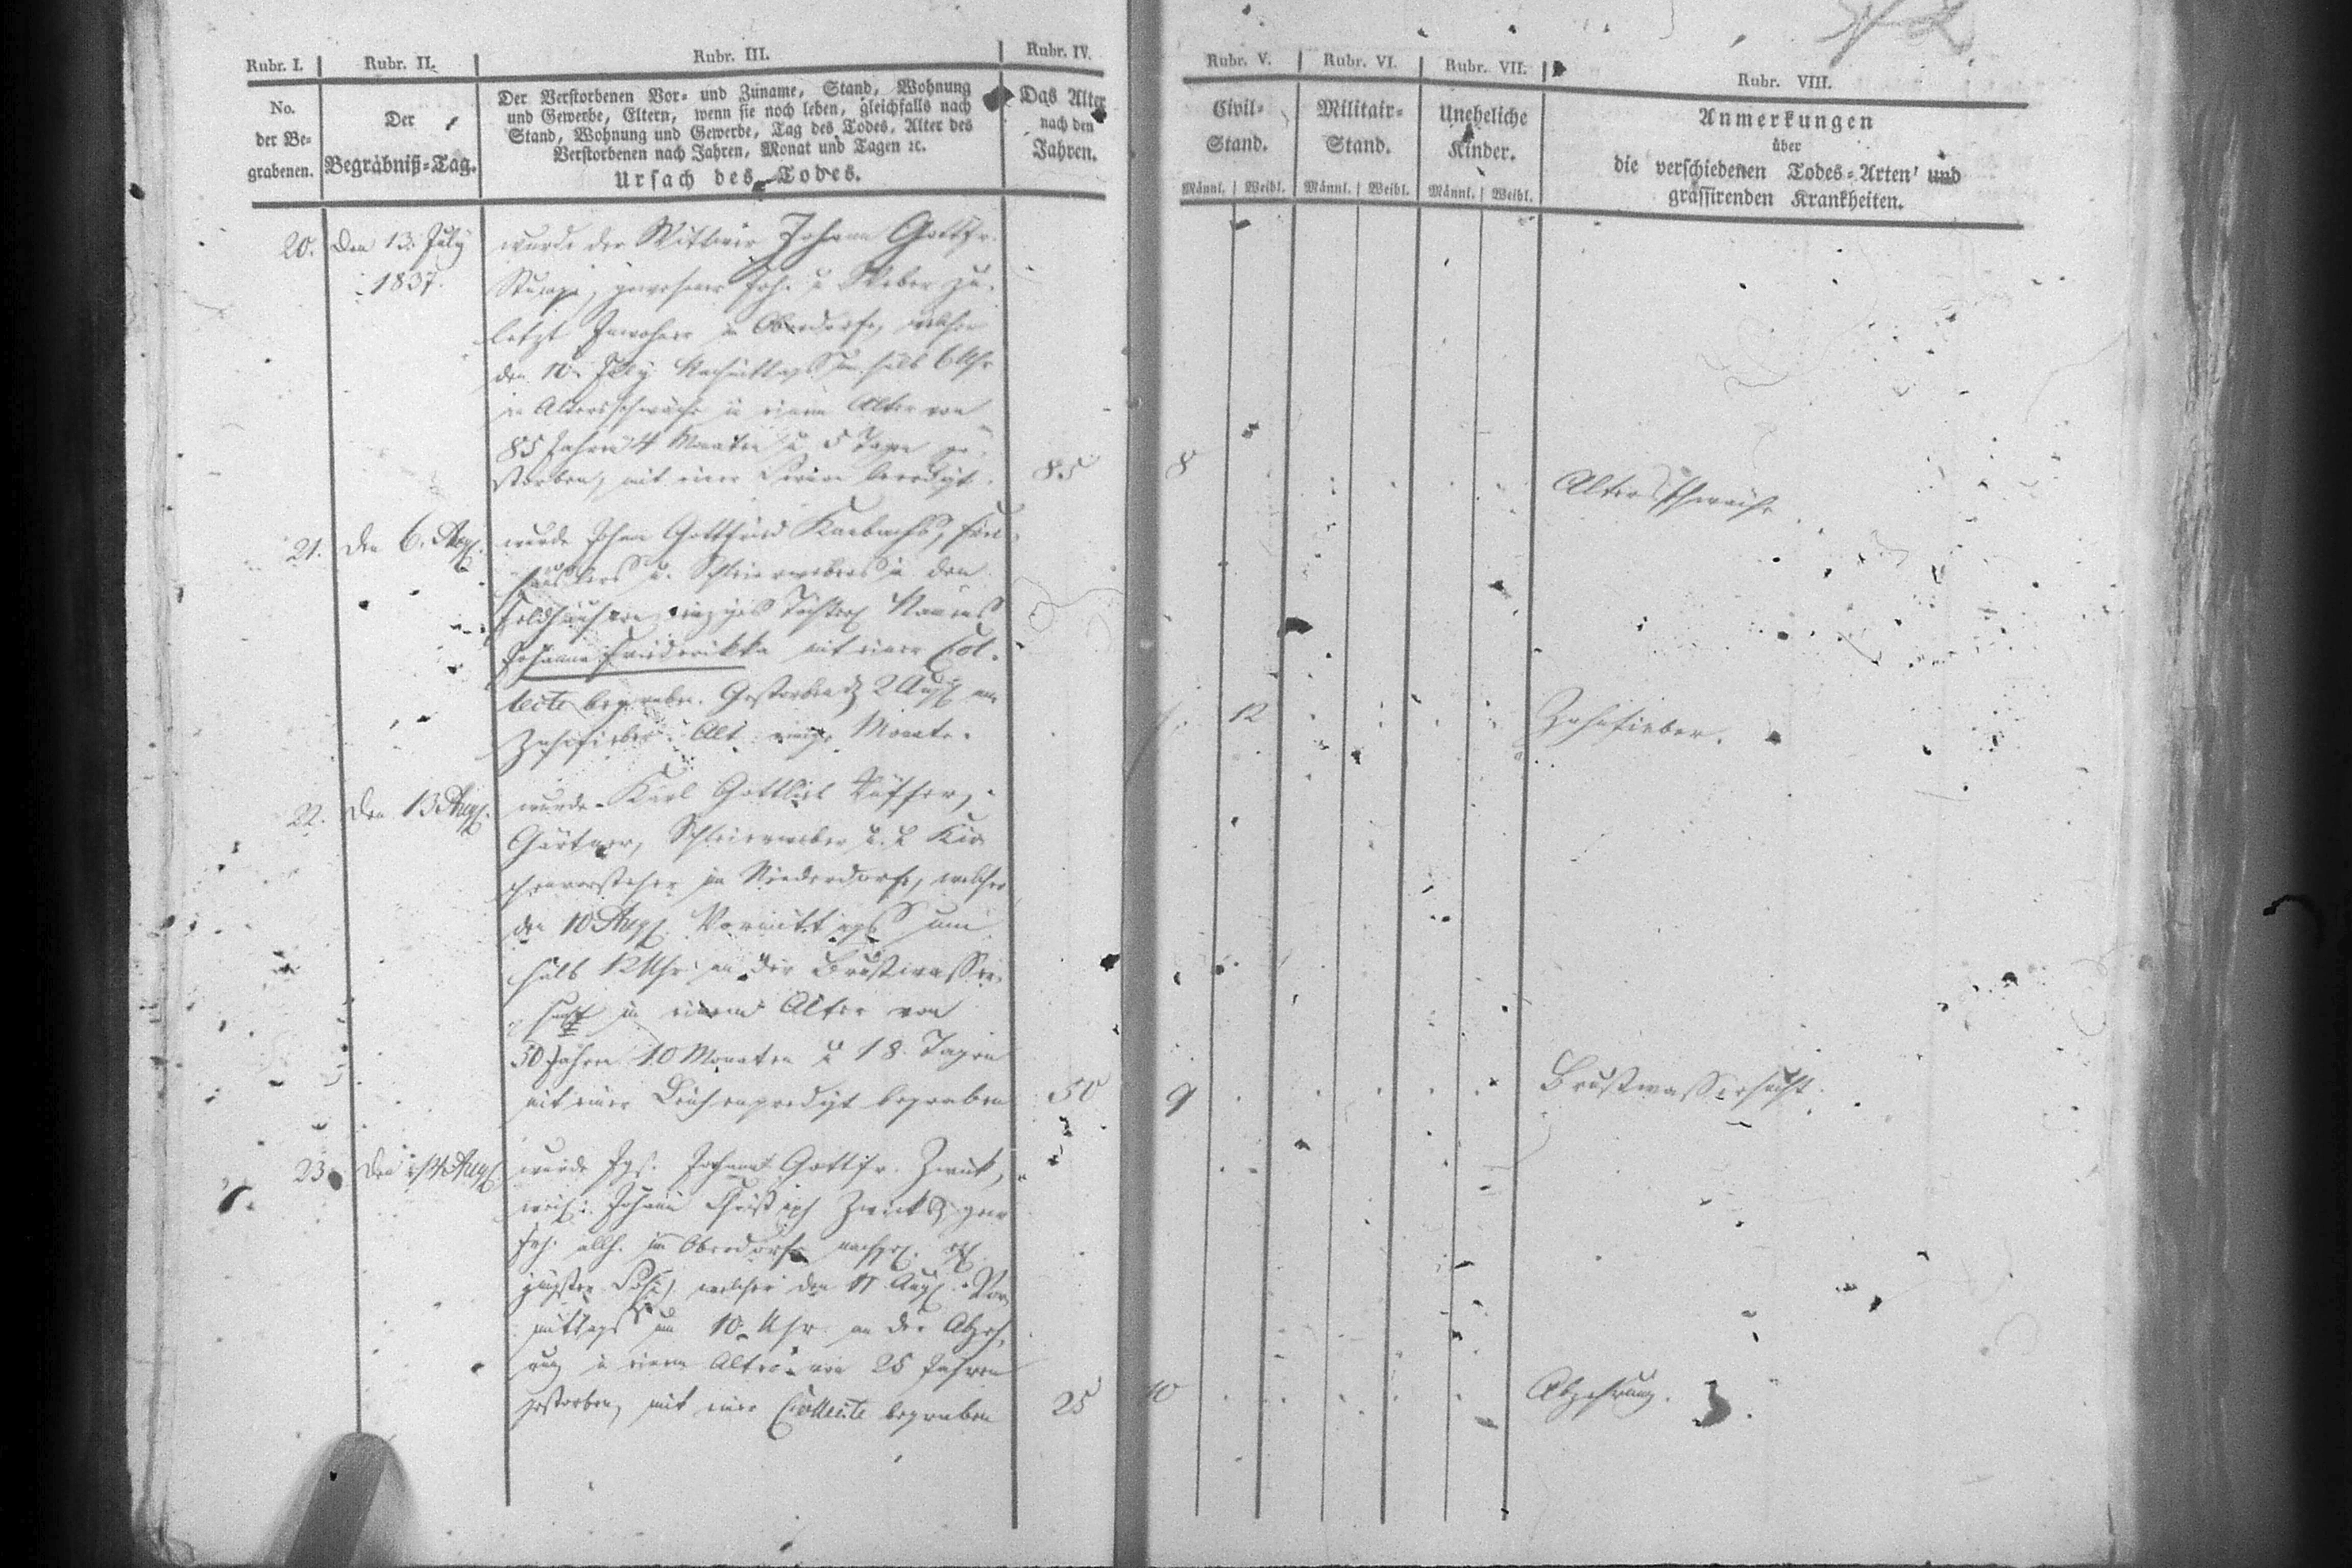 Rubr. I.
Rubr. II.
Rubr. III.
Rubr. IV.
No.
der Be-
grabenen.
Der
Begräbniß-Tag.
Der Verstorbenen Vor- und Zuname, Stand, Wohnung
und Gewerbe, Eltern, wenn sie noch leben, gleichfalls nach
Stand, Wohnung und Gewerbe, Tag des Todes, Alter des
Verstorbenen nach Jahren, Monat und Tagen ꝛc.
Ursach des Todes.
Das Alter
nach den
Jahren.
20.
Den 13. July
1837.
wurde der Wittwer Johann Gottfr.
gewesener u Weber zu-
letzt Inwohner in Oberdorfe, welcher
den 10. July Nachmittags um halb 6 Uhr
an Altersschwäche in einem Alter von
85 Jahren 4 Monaten u 5 Tagen ge-
storben, mit einer beerdigt.
85
21.
den 6. Aug.
wurde Johann Gottfried
häuslers u. Schleierwebers in den
Feldhäusern einziges Namens
Johanne Friederikke mit einer Col-
lecte begraben. Gestorben d 2 Aug am
Zahnfieber. Alt einige Monate.
22.
den 13 Aug.
wurde Karl Gottlieb
Gärtner, Schleierweber u. Kir-
chenvorsteher in Niederdorfe, welcher
den 10 Aug. Vormittags um
halb 12 Uhr an der Brustwasser-
sucht in einem Alter von
50 Jahren 10 Monaten u 18 Tagen
mit einer Leichenpredigt begraben
50
23.
den 14 Aug.
wurde Jgs. Johann Gottfr.
weil. Johann
allh. in Oberdorfe
jüngster Sohn, welcher den 11 Aug. Vor-
mittags um 10 Uhr an der Abzeh-
rung in einem Alter von 25 Jahren
gestorben, mit einer Collecte begraben
25
Rubr. V.
Rubr. VI.
Rubr. VII.
Rubr. VIII.
Civil-
Stand.
Männl. Weibl.
Militair-
Stand.
Männl. Weibl.
Uneheliche
Kinder.
Männl. Weibl.
Anmerkungen
über
die verschiedenen Todes-Arten und
grassirenden Krankheiten.
8
Altersschwäche
12
Zahnfieber.
9
Brustwassersucht.
10
Abzehrung.